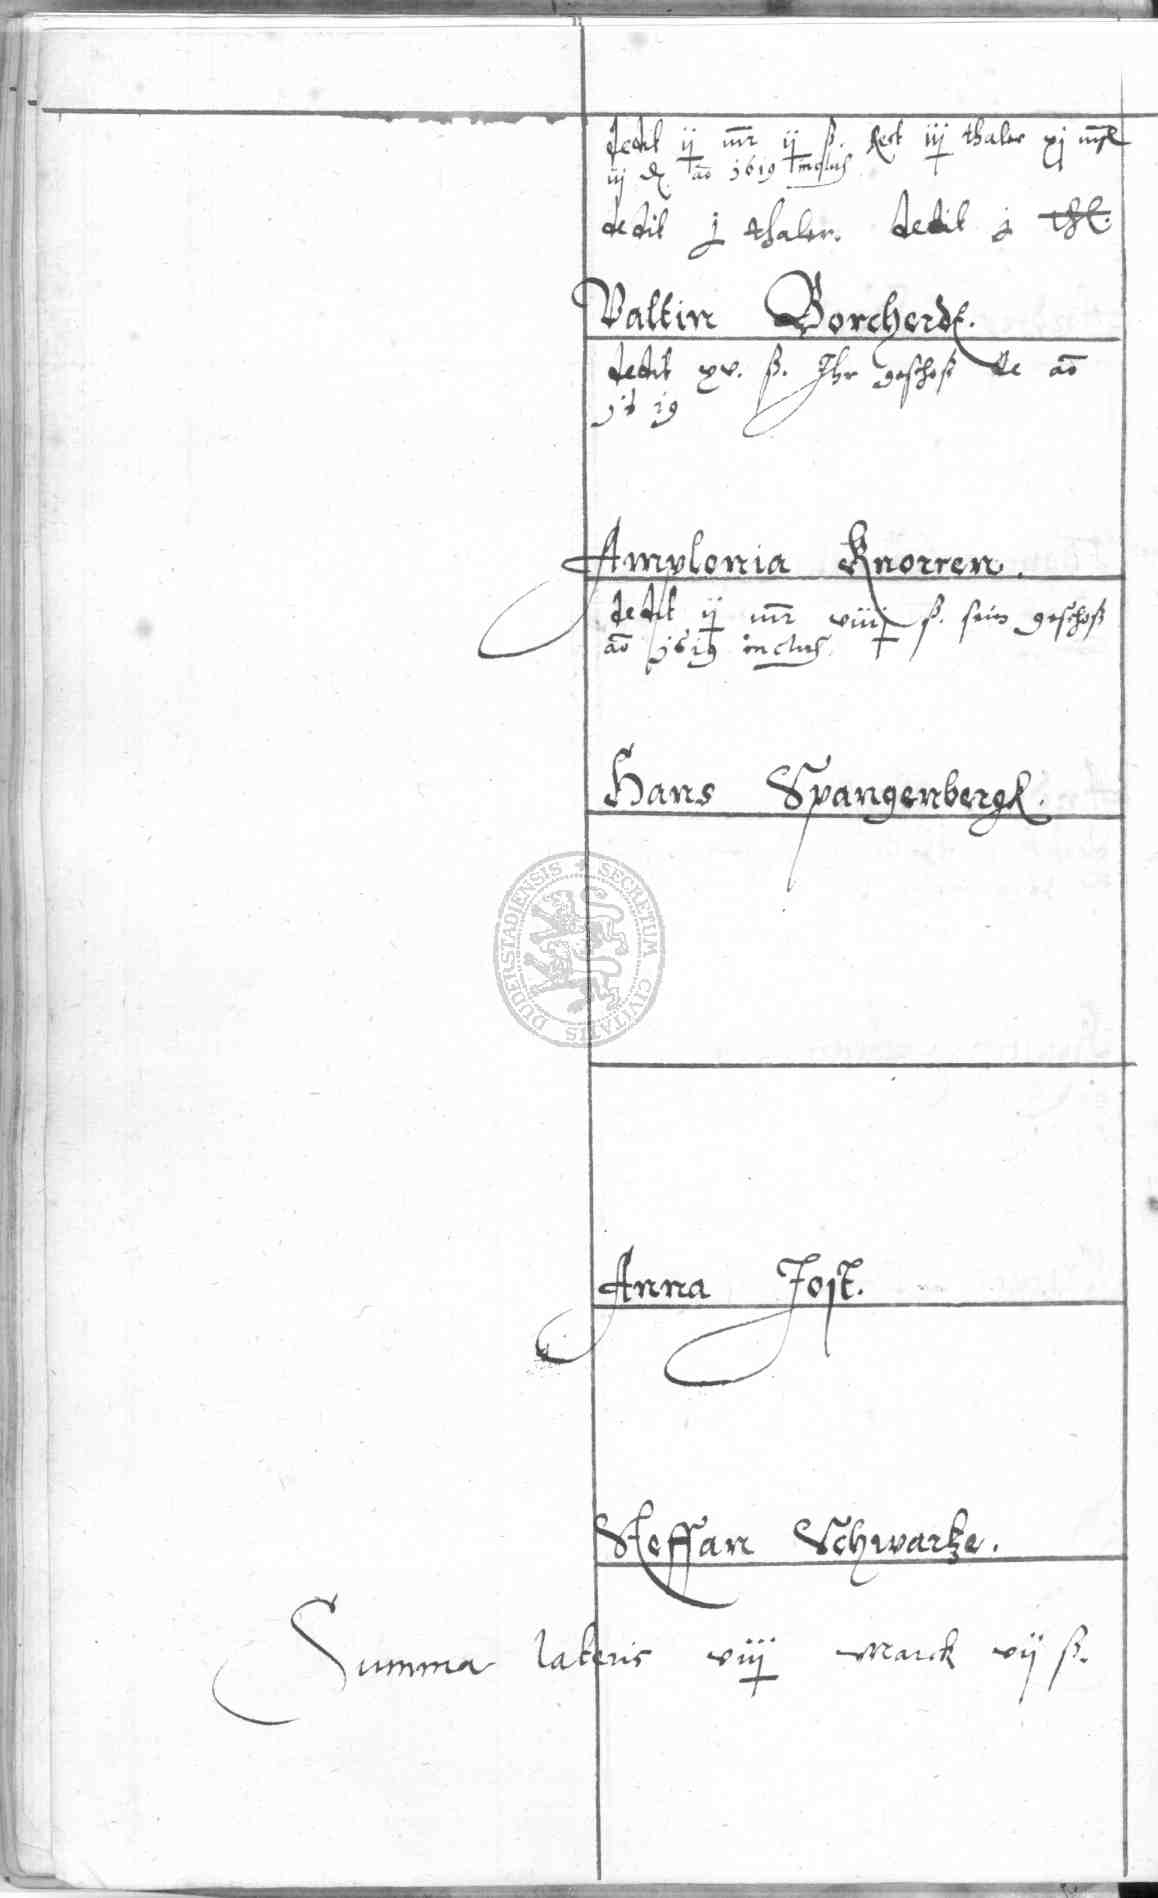 dedit ij mr ij ß. Rest iij thaler xj mr
iij ₰ ao 1619 inclus
dedit j thaler. dedit j thl.
Valtin Borcherdt.
dedit xv. ß. Ihr geschoß de ao
1619
Amplonia Knorren.
dedit ij mr viiij ß. sein geschoß
ao 1619 inclus.
Hans Spangenbergk.
DUDERSTADIENSIS + SECRETUM CIVITATIS
Anna Jost.
Steffan Schwartze.
Summa lateris viij Marck vij ß.